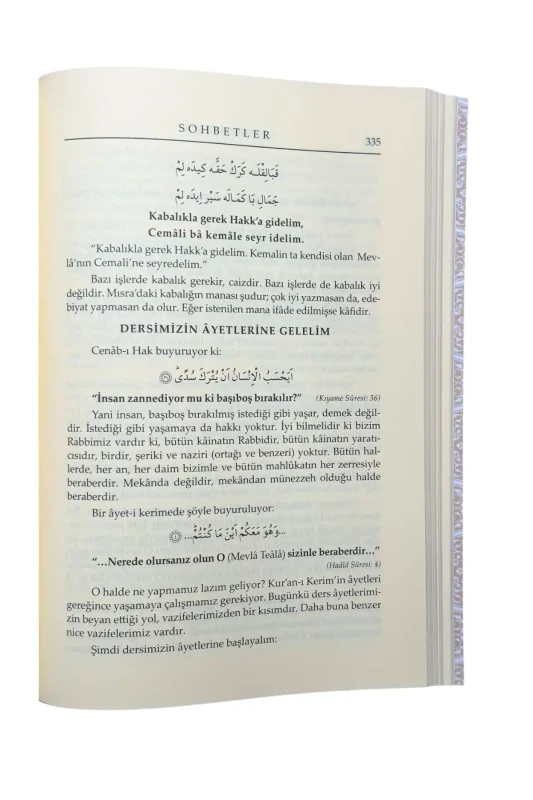 SOHBETLER
335
قَبَالِقْلَه كَرَكْ حَقَّه كِيدَه لِمْ
جَمَالِ بَا كَمَالَه سَيْر اِيدَه لِمْ
Kabalıkla gerek Hakk'a gidelim,
Cemâli bâ kemâle seyr idelim.
"Kabalıkla gerek Hakk'a gidelim. Kemalin ta kendisi olan Mev-
lâ'nın Cemali'ne seyredelim."
Bazı işlerde kabalık gerekir, caizdir. Bazı işlerde de kabalık iyi
değildir. Mısra'daki kabalığın manası şudur; çok iyi yazmasan da, ede-
biyat yapmasan da olur. Eğer istenilen mana ifâde edilmişse kâfidir.
DERSİMİZİN ÂYETLERİNE GELELİM
Cenâb-ı Hak buyuruyor ki:
اَيَحْسَبُ الْاِنْسَانُ اَنْ يُتْرَكَ سُدًىۜ ﴿٣٦﴾
"İnsan zannediyor mu ki başıboş bırakılır?" (Kıyame Sûresi: 36)
Yani insan, başıboş bırakılmış istediği gibi yaşar, demek değil-
dir. İstediği gibi yaşamaya da hakkı yoktur. İyi bilmelidir ki bizim
Rabbimiz vardır ki, bütün kâinatın Rabbidir, bütün kâinatın yaratı-
cısıdır, birdir, şeriki ve naziri (ortağı ve benzeri) yoktur. Bütün hal-
lerde, her an, her daim bizimle ve bütün mahlûkatın her zerresiyle
beraberdir. Mekânda değildir, mekândan münezzeh olduğu halde
beraberdir.
Bir âyet-i kerimede şöyle buyuruluyor:
...وَهُوَ مَعَكُمْ اَيْنَ مَا كُنْتُمْۜ... ﴿٤﴾
"…Nerede olursanız olun O (Mevlâ Teâlâ) sizinle beraberdir…"
(Hadîd Sûresi: 4)
O halde ne yapmamız lazım geliyor? Kur'an-ı Kerim'in âyetleri
gereğince yaşamaya çalışmamız gerekiyor. Bugünkü ders âyetlerimi-
zin beyan ettiği yol, vazifelerimizden bir kısımdır. Daha buna benzer
nice vazifelerimiz vardır.
Şimdi dersimizin âyetlerine başlayalım: